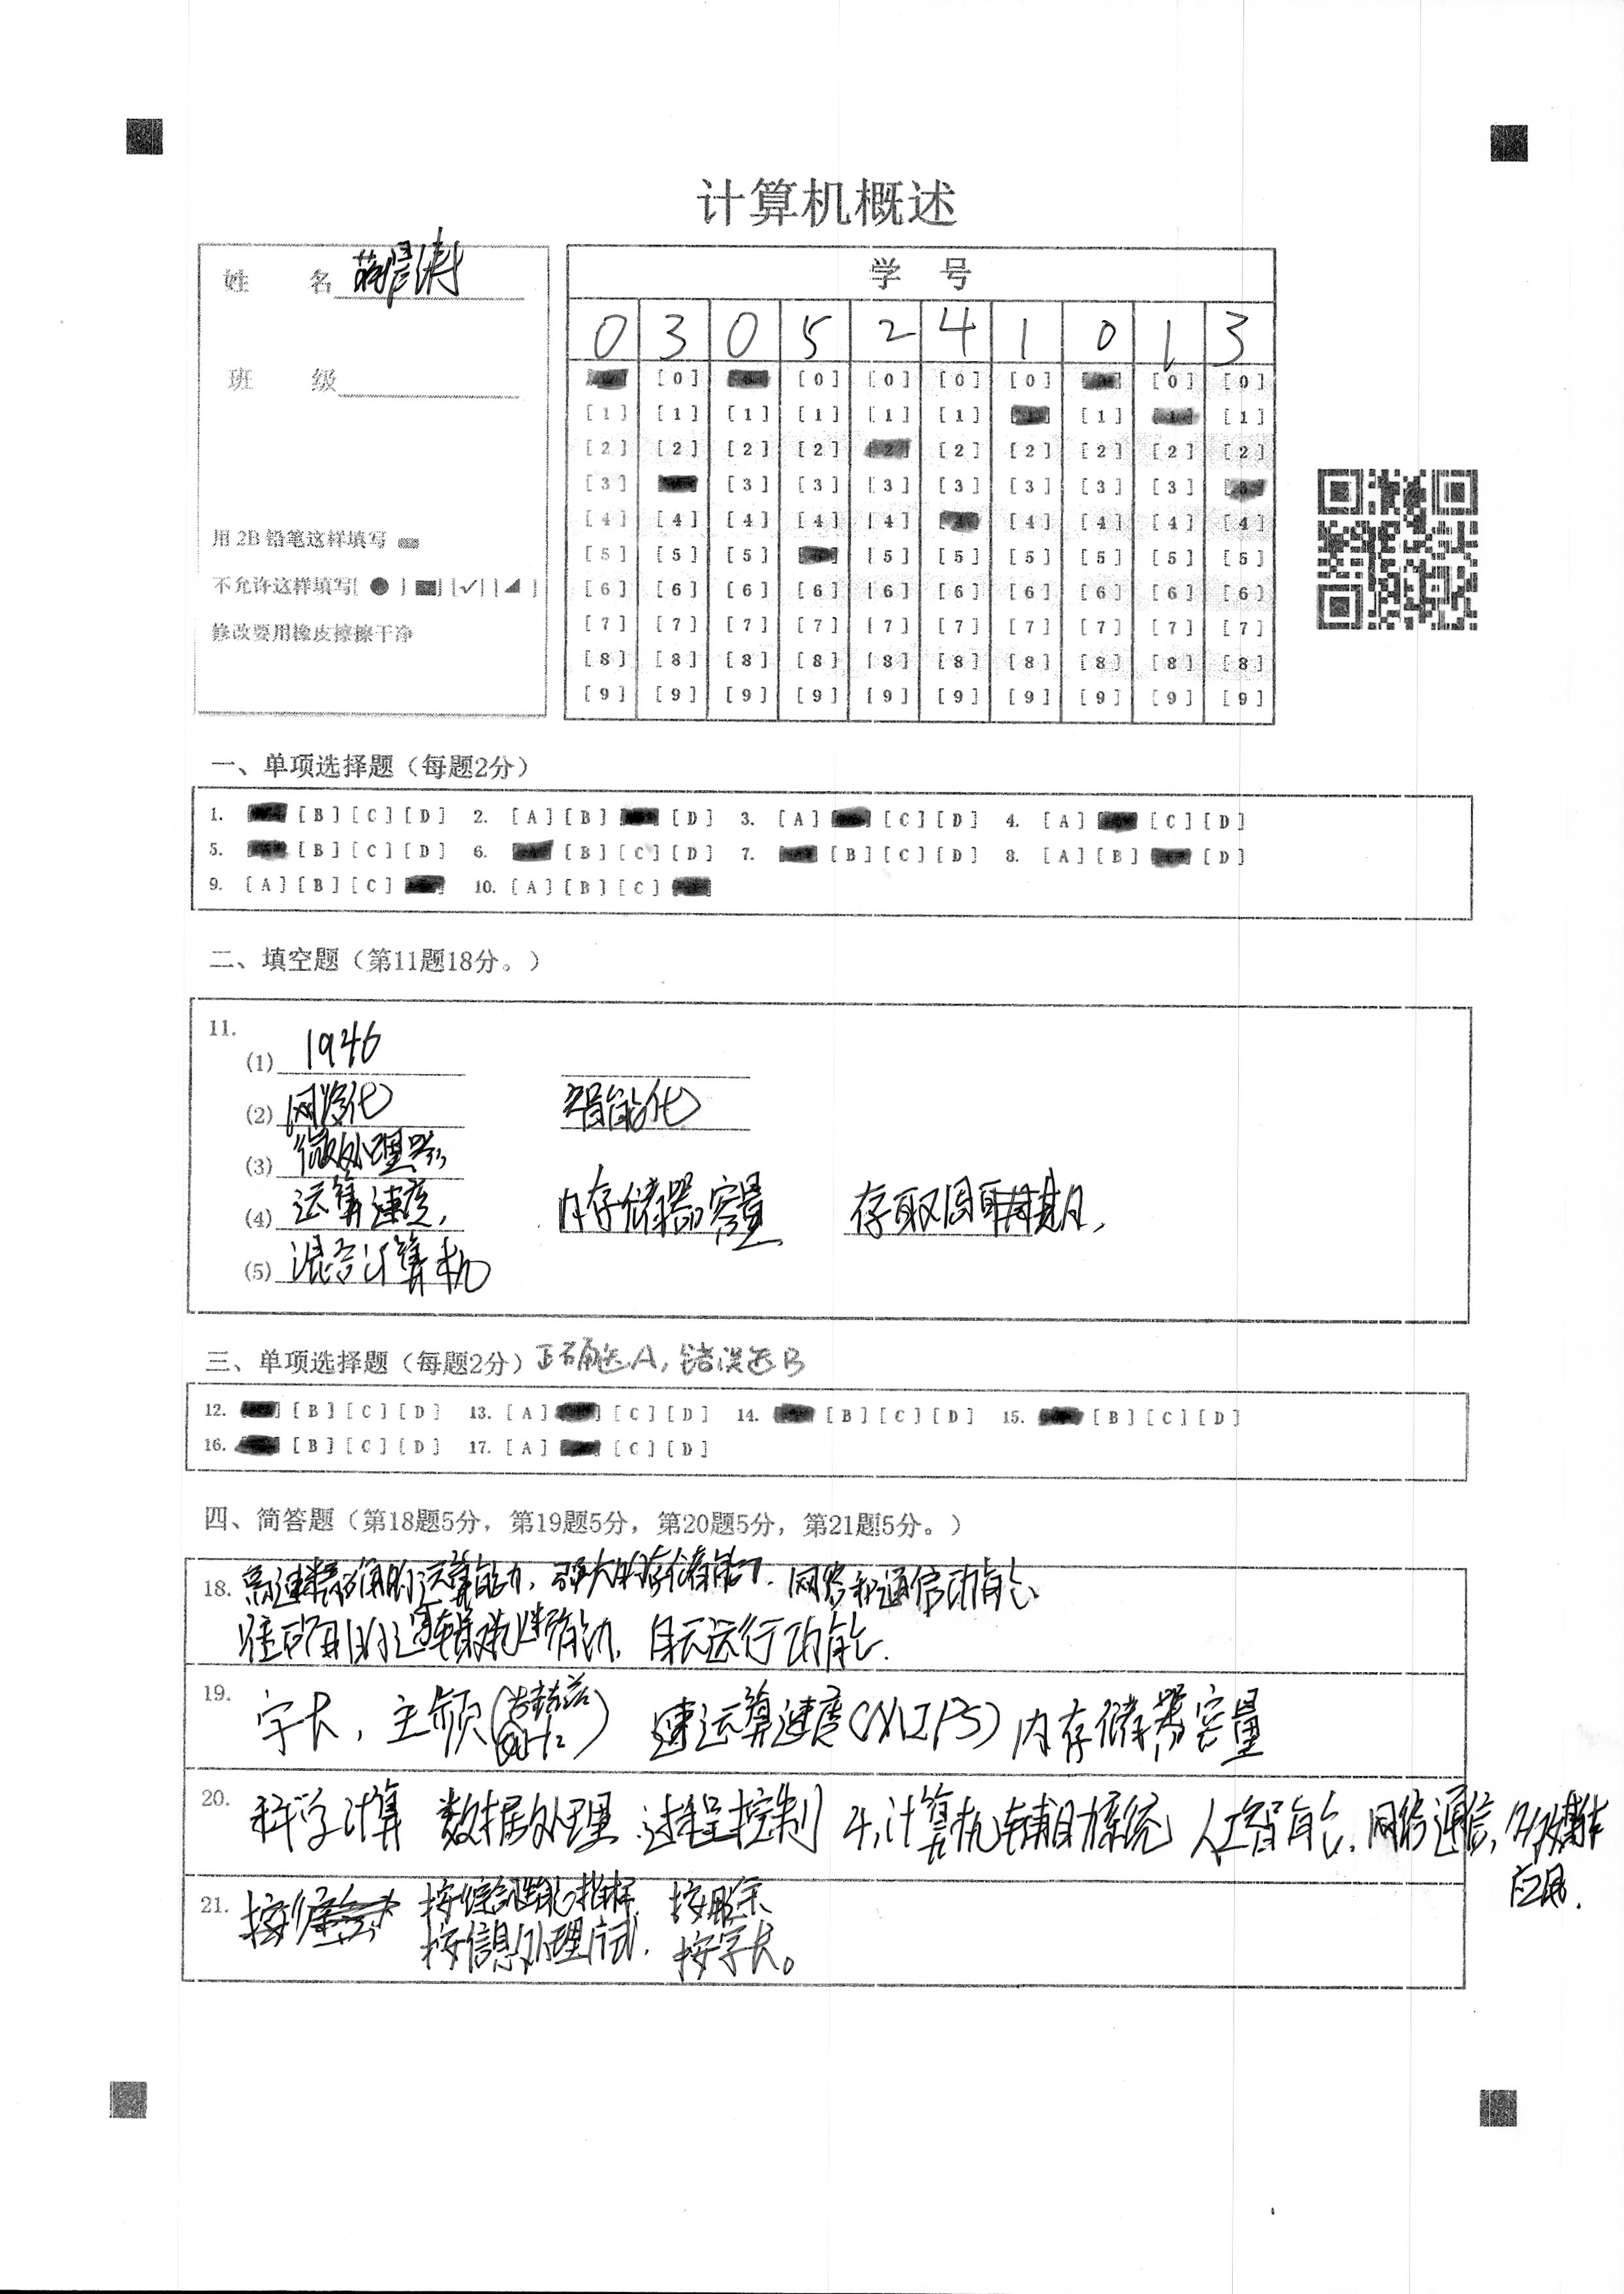 计算机概述
姓 名
学 号
0 3 0 5 2 4 1 0 1 3
班 级
[0] [0] [0] [0] [0] [0]
[1] [1] [1] [1] [1] [1] [1] [1]
[2] [2] [2] [2] [2] [2] [2] [2] [2]
[3] [3] [3] [3] [3] [3] [3] [3]
[4] [4] [4] [4] [4] [4] [4] [4] [4]
[5] [5] [5] [5] [5] [5] [5] [5] [5]
[6] [6] [6] [6] [6] [6] [6] [6] [6] [6]
[7] [7] [7] [7] [7] [7] [7] [7] [7] [7]
[8] [8] [8] [8] [8] [8] [8] [8] [8] [8]
[9] [9] [9] [9] [9] [9] [9] [9] [9] [9]
用 2B 铅笔这样填写
不允许这样填写[ ● ] [■] [✓] [◢ ]
修改要用橡皮擦擦干净
一、单项选择题（每题2分）
1. [B] [C] [D] 2. [A] [B] [D] 3. [A] [C] [D] 4. [A] [C] [D]
5. [B] [C] [D] 6. [B] [C] [D] 7. [B] [C] [D] 8. [A] [B] [D]
9. [A] [B] [C] 10. [A] [B] [C]
二、填空题（第11题18分。）
11.
(1) 1946
(2) 网络化 智能化
(3) 微处理器
(4) 运算速度, 内存储器容量 存取周期,
(5) 混合计算机
三、单项选择题（每题2分）正确选A, 错误选B
12. [B] [C] [D] 13. [A] [C] [D] 14. [B] [C] [D] 15. [B] [C] [D]
16. [B] [C] [D] 17. [A] [C] [D]
四、简答题（第18题5分，第19题5分，第20题5分，第21题5分。）
18. 高速精确的运算能力, 强大的存储能力. 网络和通信功能
准确的逻辑判断能力, 自动运行功能.
19. 字长, 主频( GHz ) 运算速度(MIPS) 内存储器容量
20. 科学计算 数据处理 过程控制 计算机辅助系统 人工智能. 网络通信, 多媒体
应用.
21. 按综合性能指标 按用途
按信息处理方式. 按字长。